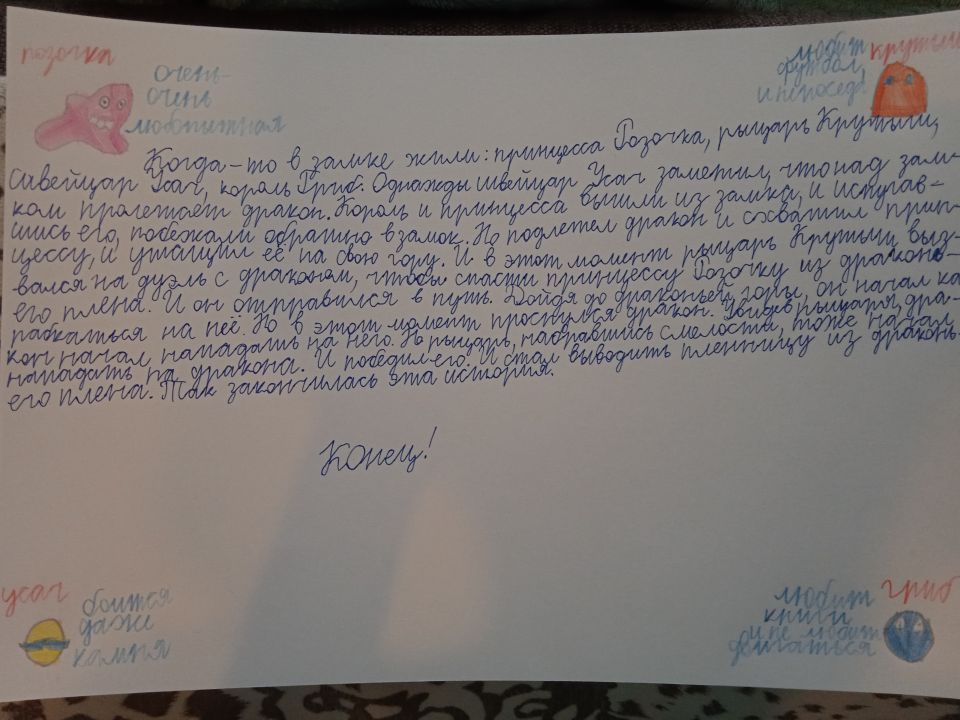 розочка
очень-
очень
любопытная
любит
футбол,
и непоседа
крутыш
Когда-то в замке жили: принцесса Розочка, рыцарь Крутыш,
Швейцар Усач, король Гриб. Однажды швейцар Усач заметил, что над зам-
ком пролетает дракон. Король и принцесса вышли из замка, и испугав-
шись его, побежали обратно в замок. Но подлетел дракон и схватил прин-
цессу, и утащил её на свою гору. И в этот момент рыцарь Крутыш выз-
вался на дуэль с драконом, чтобы спасти принцессу Розочку из дракон-
его плена. И он отправился в путь. Дойдя до драконьей горы, он начал ка
рабкаться на неё. Но в этот момент проснулся дракон. Увидев рыцаря, дра-
кон начал нападать на него. Но рыцарь, набравшись смелости, тоже начал
нападать на дракона. И победил его. И стал выводить пленницу из дракон-
его плена. Так закончилась эта история.
Конец!
усач
боится
даже
камня
любит
книги
и не любит
двигаться
гриб